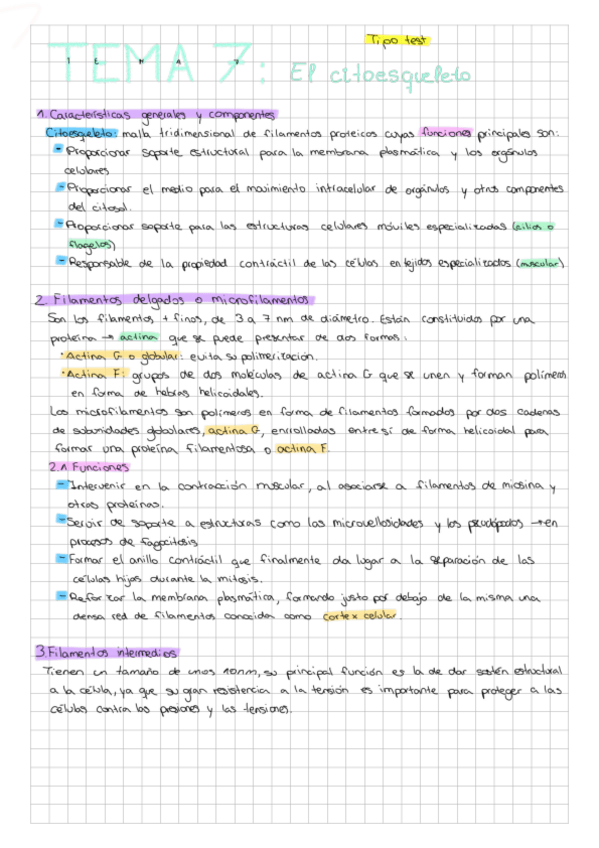 Tipo test
TEMA 7: El citoesqueleto
1. Características generales y componentes
Citoesqueleto: malla tridimensional de filamentos proteicos cuyas funciones principales son:
- Proporcionar soporte estructural para la membrana plasmática y los orgánulos
celulares
- Proporcionar el medio para el movimiento intracelular de orgánulos y otros componentes
del citosol.
- Proporcionar soporte para las estructuras celulares móviles especializadas (cilios o
flagelos)
- Responsable de la propiedad contráctil de las células en tejidos especializados (muscular)
2. Filamentos delgados o microfilamentos
Son los filamentos + finos, de 3 a 7 nm de diámetro. Están constituidos por una
proteína → actina que se puede presentar de dos formas:
· Actina G o globular: evita su polimerización.
· Actina F: grupos de dos moléculas de actina G que se unen y forman polímeros
en forma de hebras helicoidales.
Los microfilamentos son polímeros en forma de filamentos formados por dos cadenas
de subunidades globulares, actina G, enrrolladas entre sí de forma helicoidal para
formar una proteína filamentosa o actina F.
2.1 Funciones
- Intervenir en la contracción muscular, al asociarse a filamentos de miosina y
otras proteínas.
- Servir de soporte a estructuras como las microvellosidades y los pseudópodos → en
procesos de fagocitosis
- Formar el anillo contráctil que finalmente da lugar a la separación de las
células hijas durante la mitosis.
- Reforzar la membrana plasmática, formando justo por debajo de la misma una
densa red de filamentos conocida como cortex celular.
3. Filamentos intermedios
Tienen un tamaño de unos 10nm, su principal función es la de dar sostén estructural
a la célula, ya que su gran resistencia a la tensión es importante para proteger a las
células contra las presiones y las tensiones.